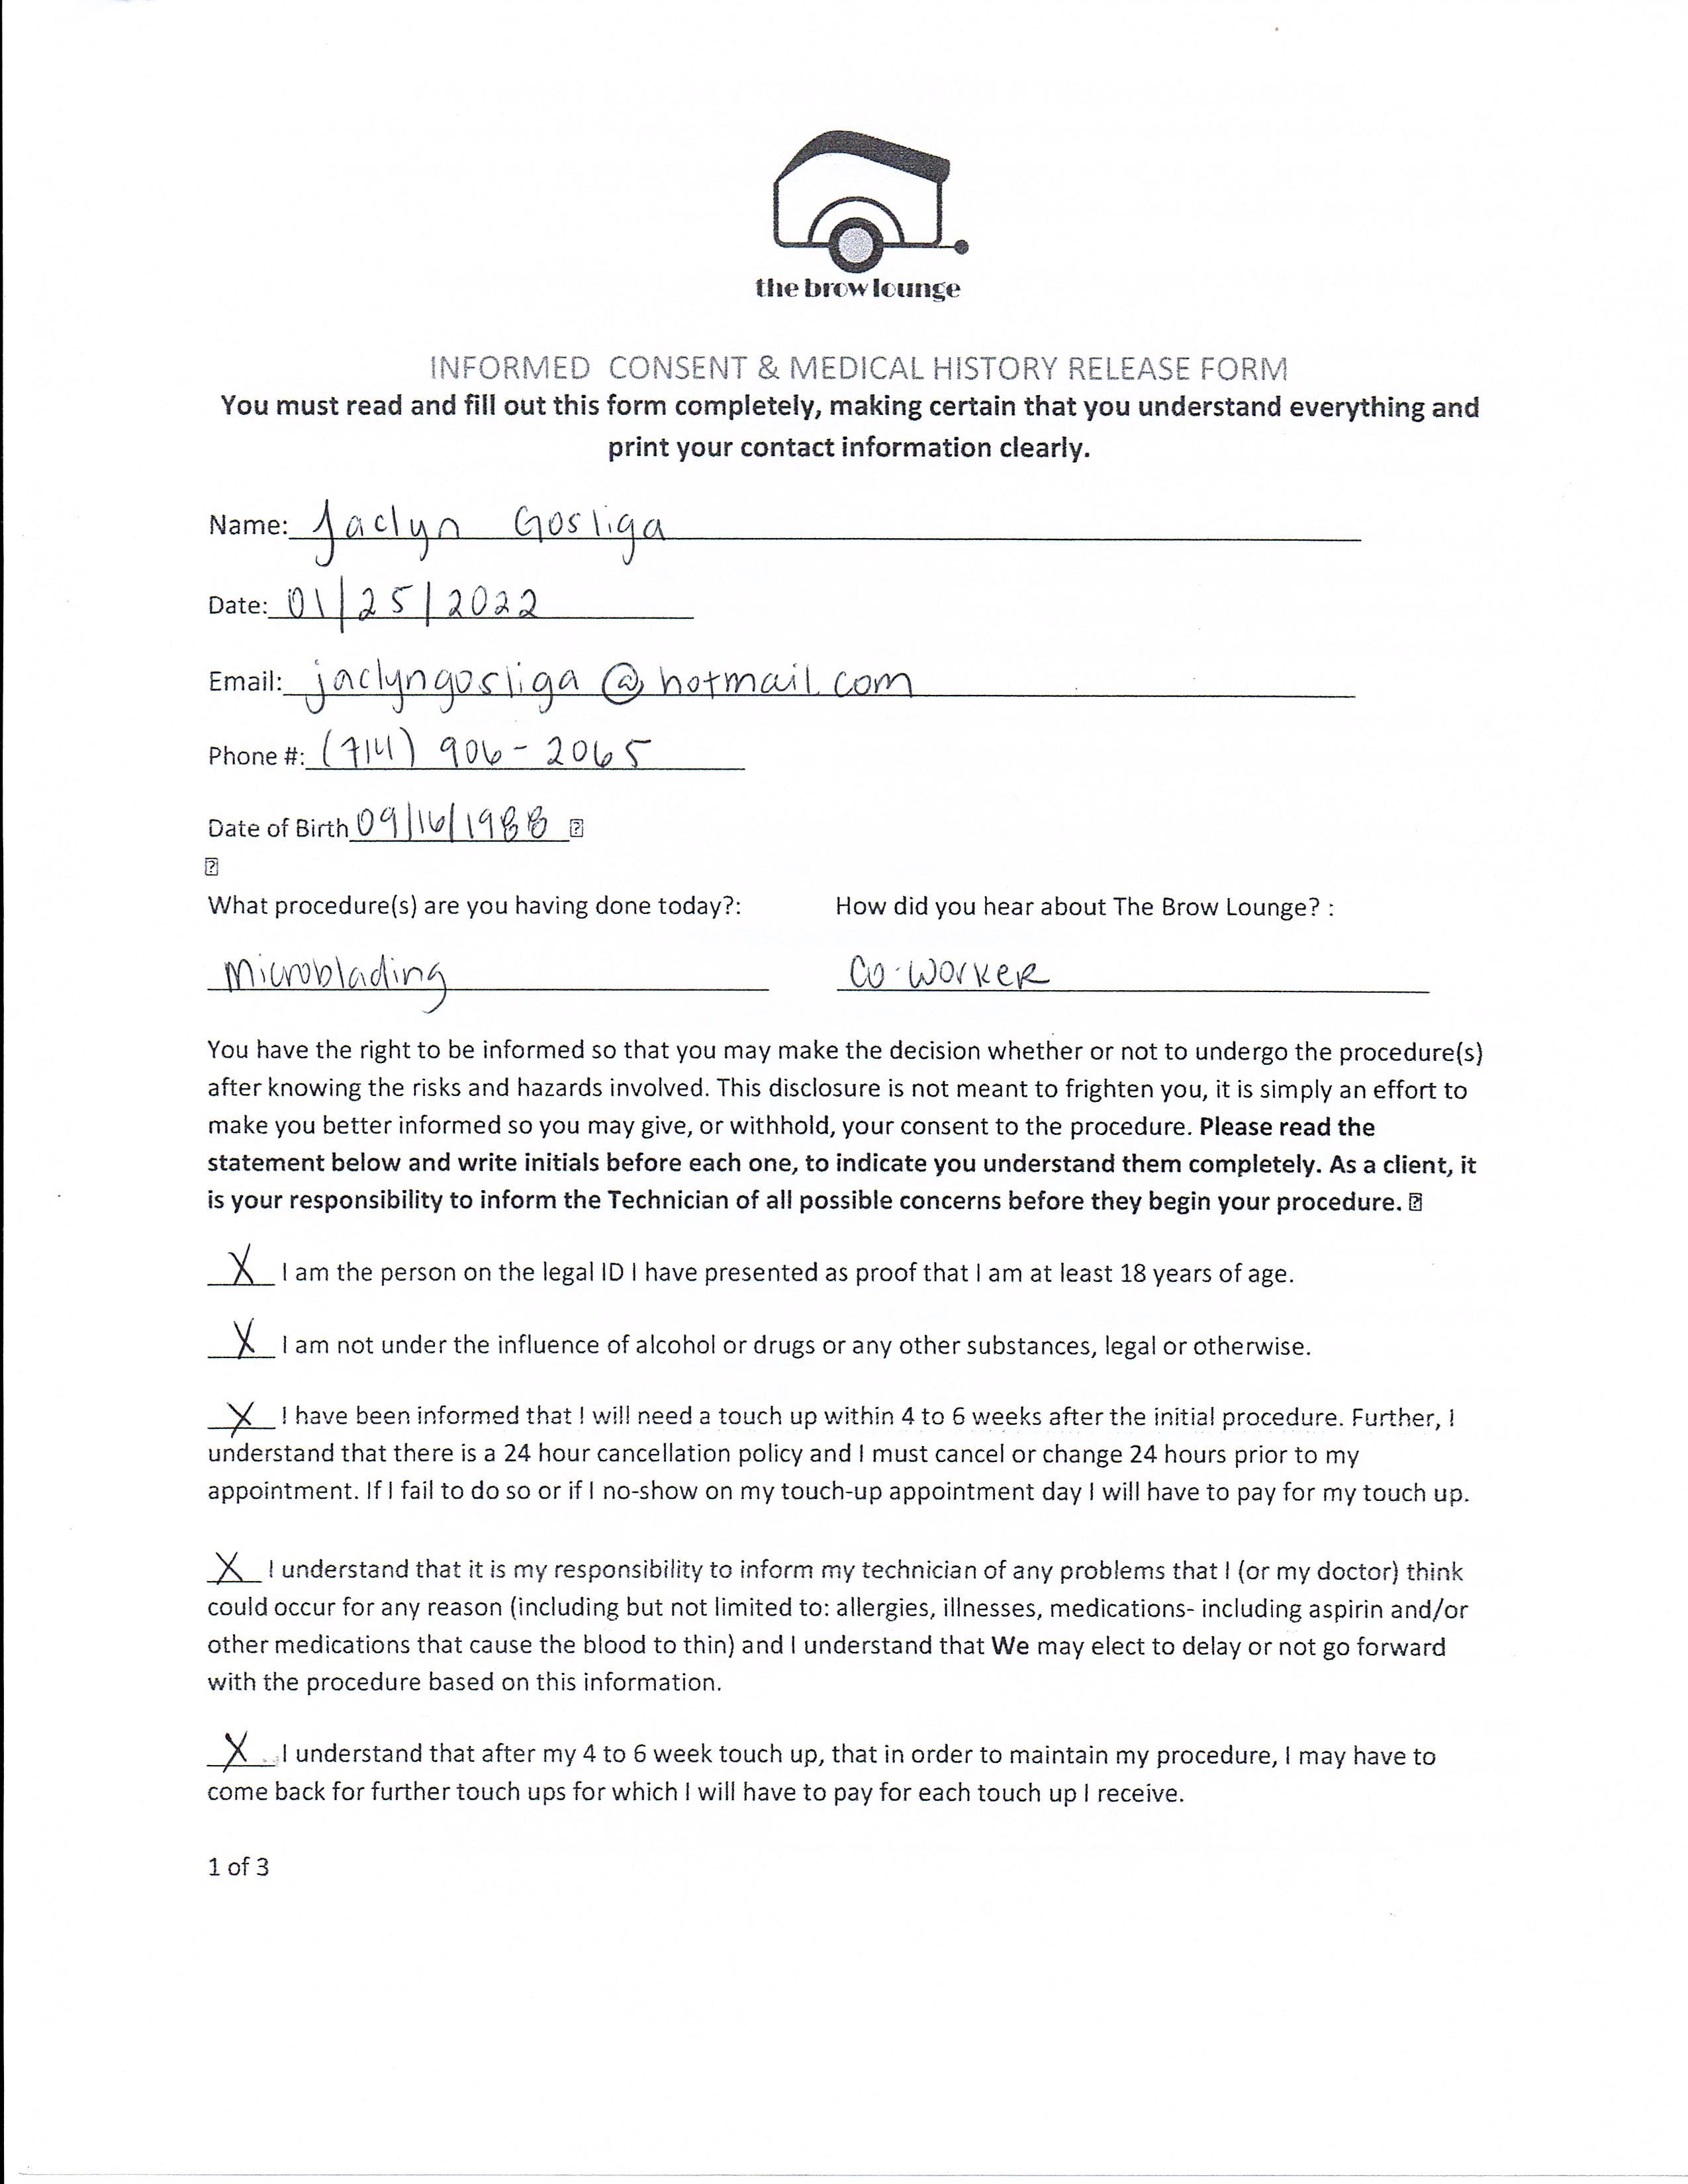 the brow lounge
INFORMED CONSENT & MEDICAL HISTORY RELEASE FORM
You must read and fill out this form completely, making certain that you understand everything and
print your contact information clearly.
Name: Jaclyn Gosliga
Date: 01/25/2022
Email: jaclyngosliga@hotmail.com
Phone #: (714) 906-2065
Date of Birth 09/16/1988
What procedure(s) are you having done today?: How did you hear about The Brow Lounge? :
Microblading Co-worker
You have the right to be informed so that you may make the decision whether or not to undergo the procedure(s)
after knowing the risks and hazards involved. This disclosure is not meant to frighten you, it is simply an effort to
make you better informed so you may give, or withhold, your consent to the procedure. Please read the
statement below and write initials before each one, to indicate you understand them completely. As a client, it
is your responsibility to inform the Technician of all possible concerns before they begin your procedure.
X I am the person on the legal ID I have presented as proof that I am at least 18 years of age.
X I am not under the influence of alcohol or drugs or any other substances, legal or otherwise.
X I have been informed that I will need a touch up within 4 to 6 weeks after the initial procedure. Further, I
understand that there is a 24 hour cancellation policy and I must cancel or change 24 hours prior to my
appointment. If I fail to do so or if I no-show on my touch-up appointment day I will have to pay for my touch up.
X I understand that it is my responsibility to inform my technician of any problems that I (or my doctor) think
could occur for any reason (including but not limited to: allergies, illnesses, medications- including aspirin and/or
other medications that cause the blood to thin) and I understand that We may elect to delay or not go forward
with the procedure based on this information.
X I understand that after my 4 to 6 week touch up, that in order to maintain my procedure, I may have to
come back for further touch ups for which I will have to pay for each touch up I receive.
1 of 3